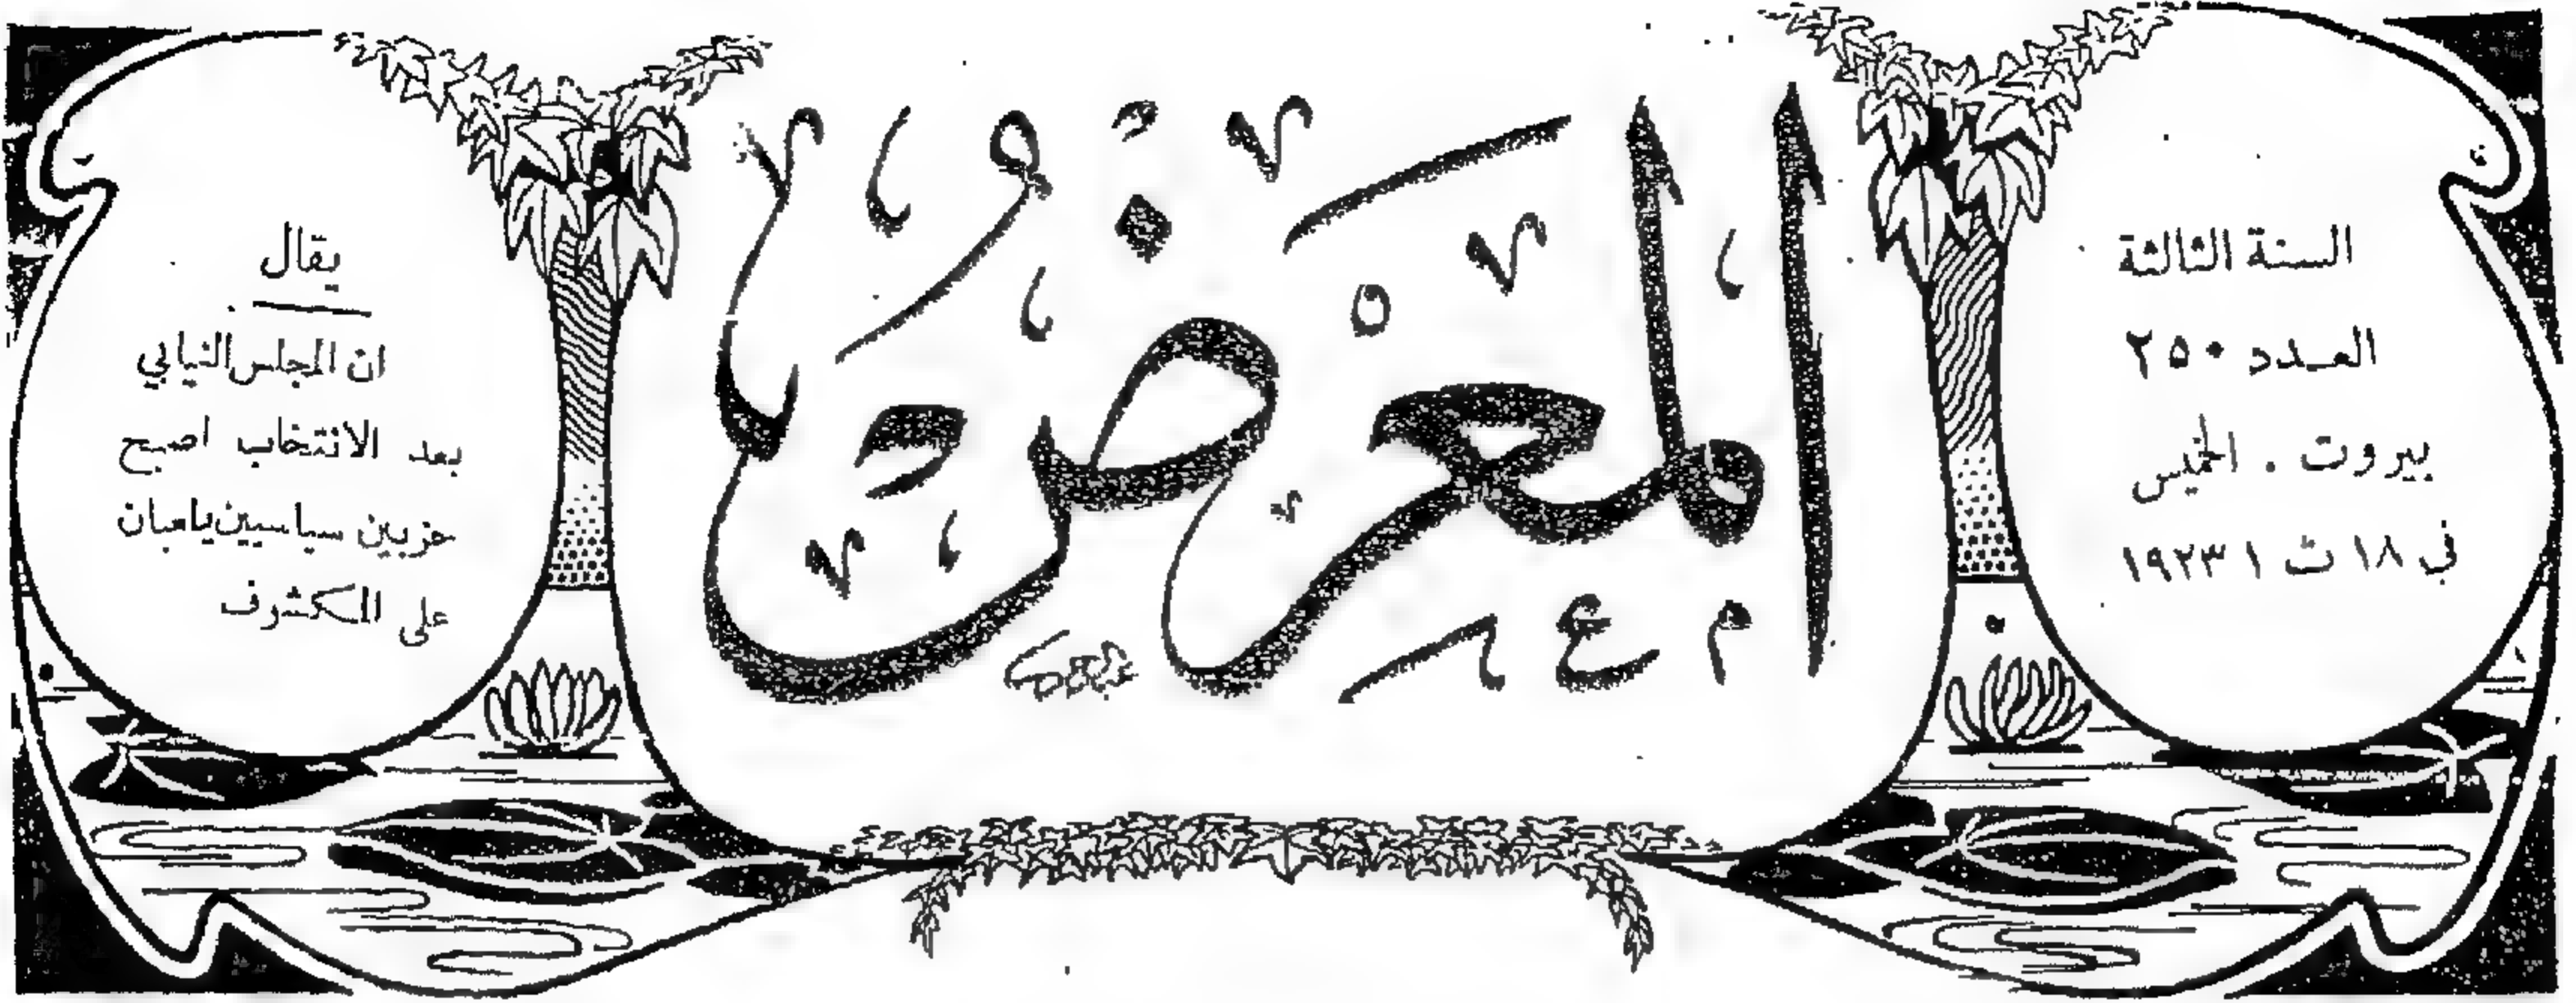 السنة الثالثة
العدد ٢٥٠
بيروت . الخميس
في ١٨ ت ١ ١٩٢٣
المعرض
يقال
ان المجلس النيابي
بعد الانتخاب اصبح
حزبين سياسيين يلعبان
على المكشوف